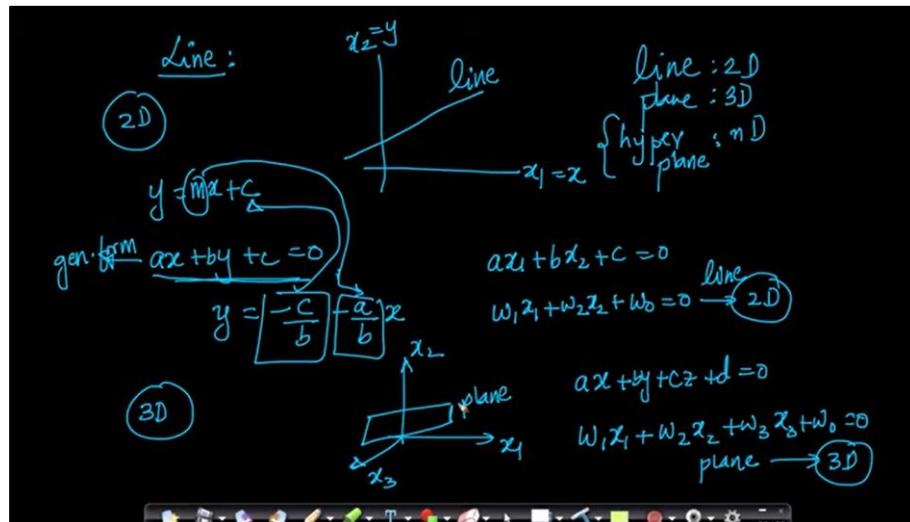 Line:
2D
x₂=y
line
x₁=x
line : 2D
plane : 3D
hyper plane : nD
y = mx+c
gen. form ax+by+c=0
y = -c/b -a/b x
ax₁+bx₂+c=0
w₁x₁+w₂x₂+w₀=0 line → 2D
3D
x₂
plane
x₁
x₃
ax+by+cz+d=0
w₁x₁+w₂x₂+w₃x₃+w₀=0
plane → 3D